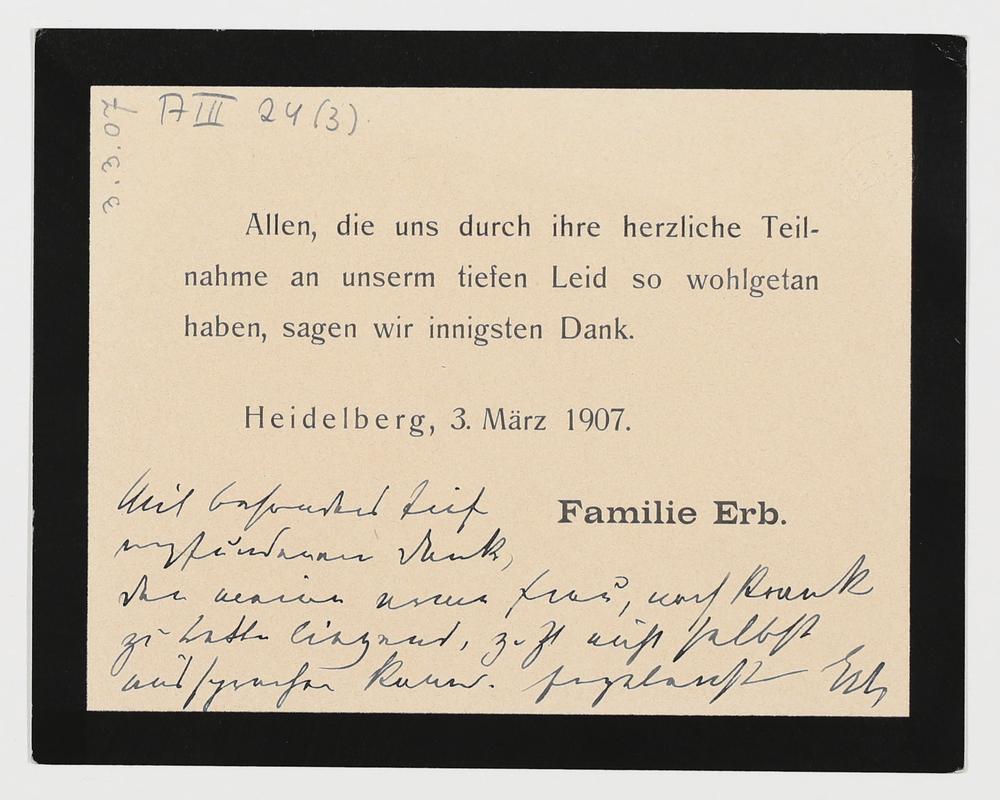 A III 24 (3)
3.3.07
Allen, die uns durch ihre herzliche Teil-
nahme an unserm tiefen Leid so wohlgetan
haben, sagen wir innigsten Dank.
Heidelberg, 3. März 1907.
Familie Erb.
Mit besonders tief
empfundenem Dank,
den meine arme Frau, noch krank
zu Bette liegend, nicht selbst
aussprechen kann. Erb